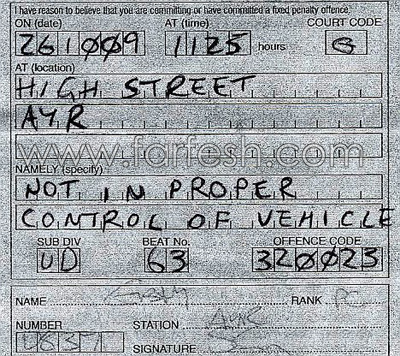 I have reason to believe that you are committing or have committed a fixed penalty offence.
ON (date) AT (time) COURT CODE
261009 1125 hours G
AT (location)
HIGH STREET
AYR
www.farfesh.com
NAMELY (specify)
NOT IN PROPER
CONTROL OF VEHICLE
SUB DIV BEAT No. OFFENCE CODE
UD 63 320023
NAME RANK PC
NUMBER STATION AYR
SIGNATURE